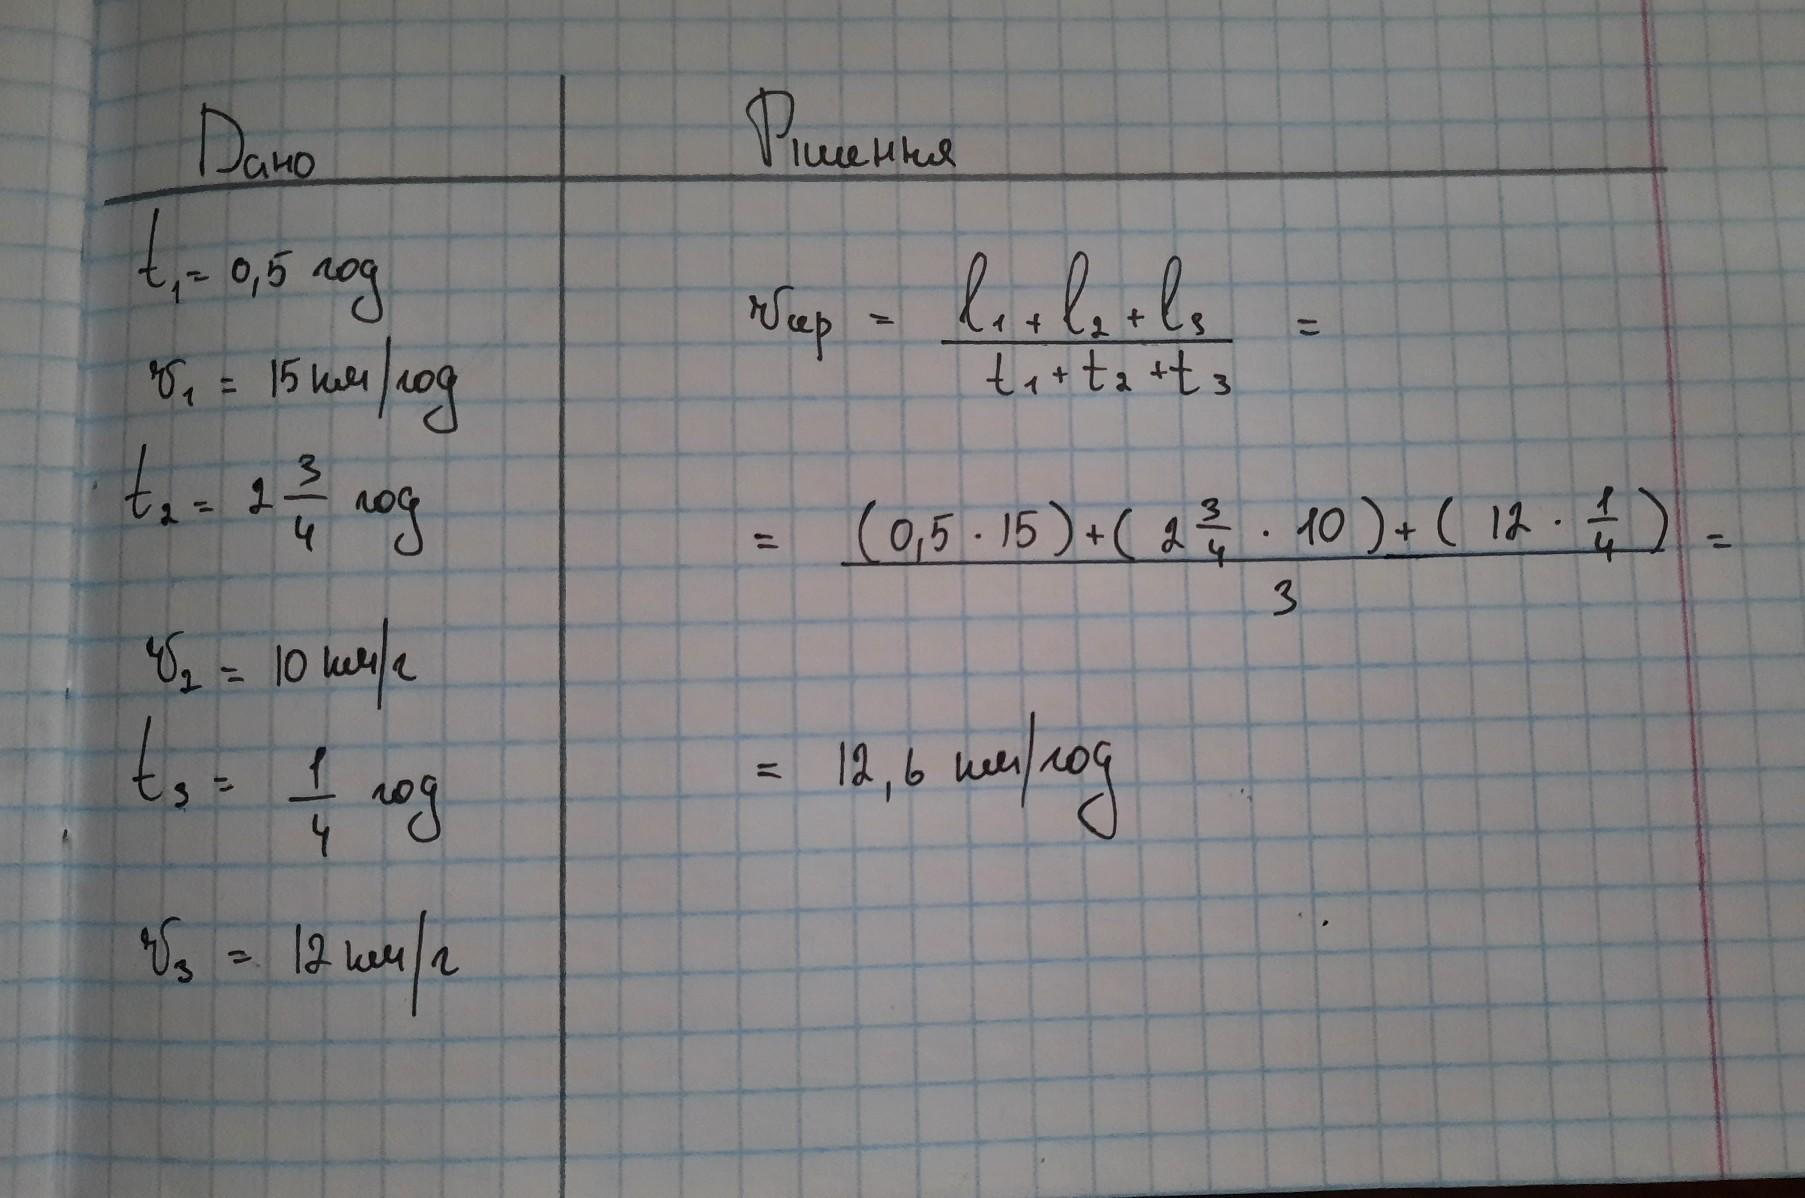 Дано
t₁ = 0,5 год
v₁ = 15 км/год
t₂ = 2 3/4 год
v₂ = 10 км/г
t₃ = 1/4 год
v₃ = 12 км/г
Рішення
vсер = (l₁ + l₂ + l₃)/(t₁ + t₂ + t₃) =
= ((0,5 · 15) + (2 3/4 · 10) + (12 · 1/4))/3 =
= 12,6 км/год